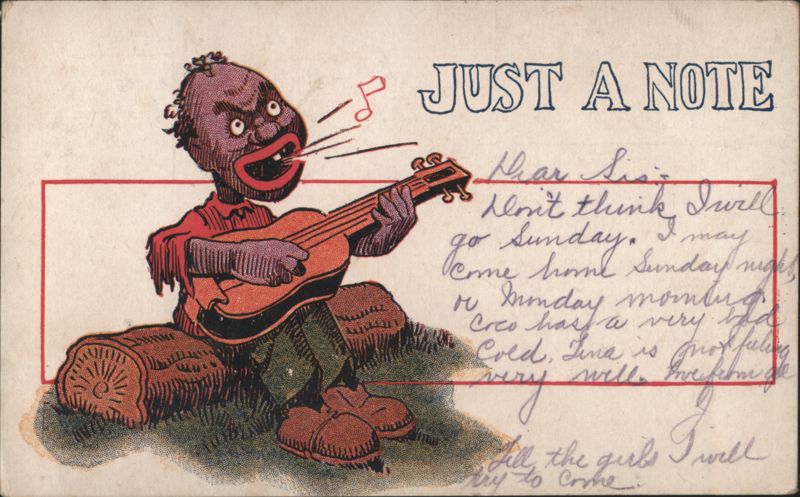 JUST A NOTE
Dear Sis-
Don't think I will
go Sunday. I may
come home Sunday night,
or Monday morning.
Coco has a very bad
Cold. Tina is not feeling
very well. Love from all
Tell the girls I will
try to come.